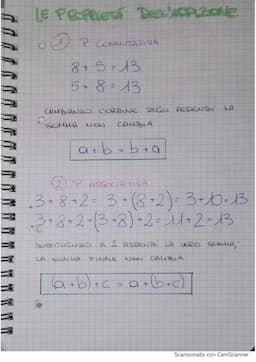 LE PROPRIETÀ DELL'ADDIZIONE
1 P. COMMUTATIVA
8 + 5 = 13
5 + 8 = 13
CAMBIANDO L'ORDINE DEGLI ADDENDI LA
SOMMA NON CAMBIA
a + b = b + a
2 P. ASSOCIATIVA
3 + 8 + 2 = 3 + (8 + 2) = 3 + 10 = 13
3 + 8 + 2 = (3 + 8) + 2 = 11 + 2 = 13
SOSTITUENDO A 2 ADDENDI LA LORO SOMMA,
LA SOMMA FINALE NON CAMBIA
(a + b) + c = a + (b + c)
Scansionato con CamScanner